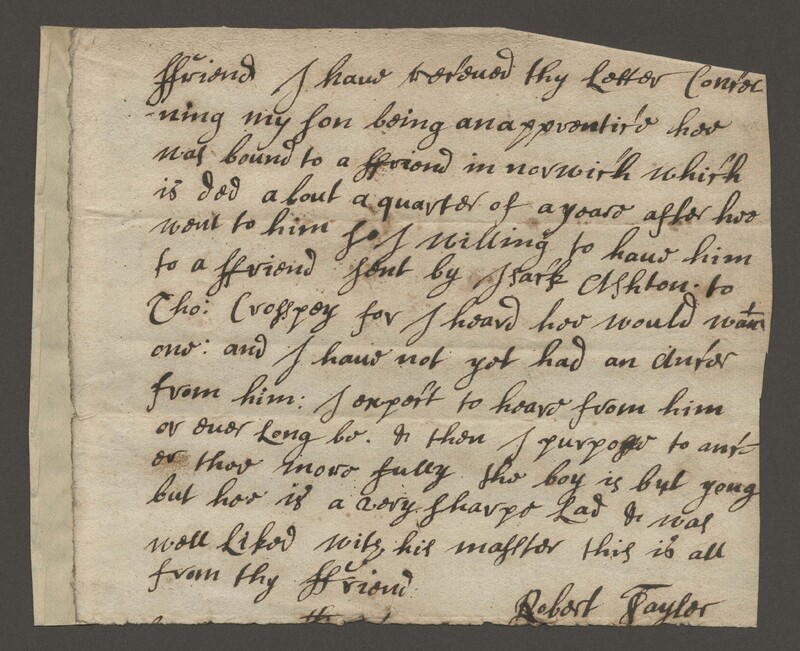 ffriend I have receued thy Letter Concer
-ning my son being an apprentice hee
was bound to a ffriend in norwich which
is ded about a quarter of a yeare after hee
went to him so I willing to haue him
to a ffriend sent by Isack Ashton to
Tho: Crosspey for I heard hee would want
one: and I haue not yet had an Ancer
from him: I expect to heare from him
or euer Long be. & then I purpose to anc-
er thee more fully the boy is but youg
but hee is a very sharpe Lad & was
well Liked with his masster this is all
from thy ffriend
Robert Tayler